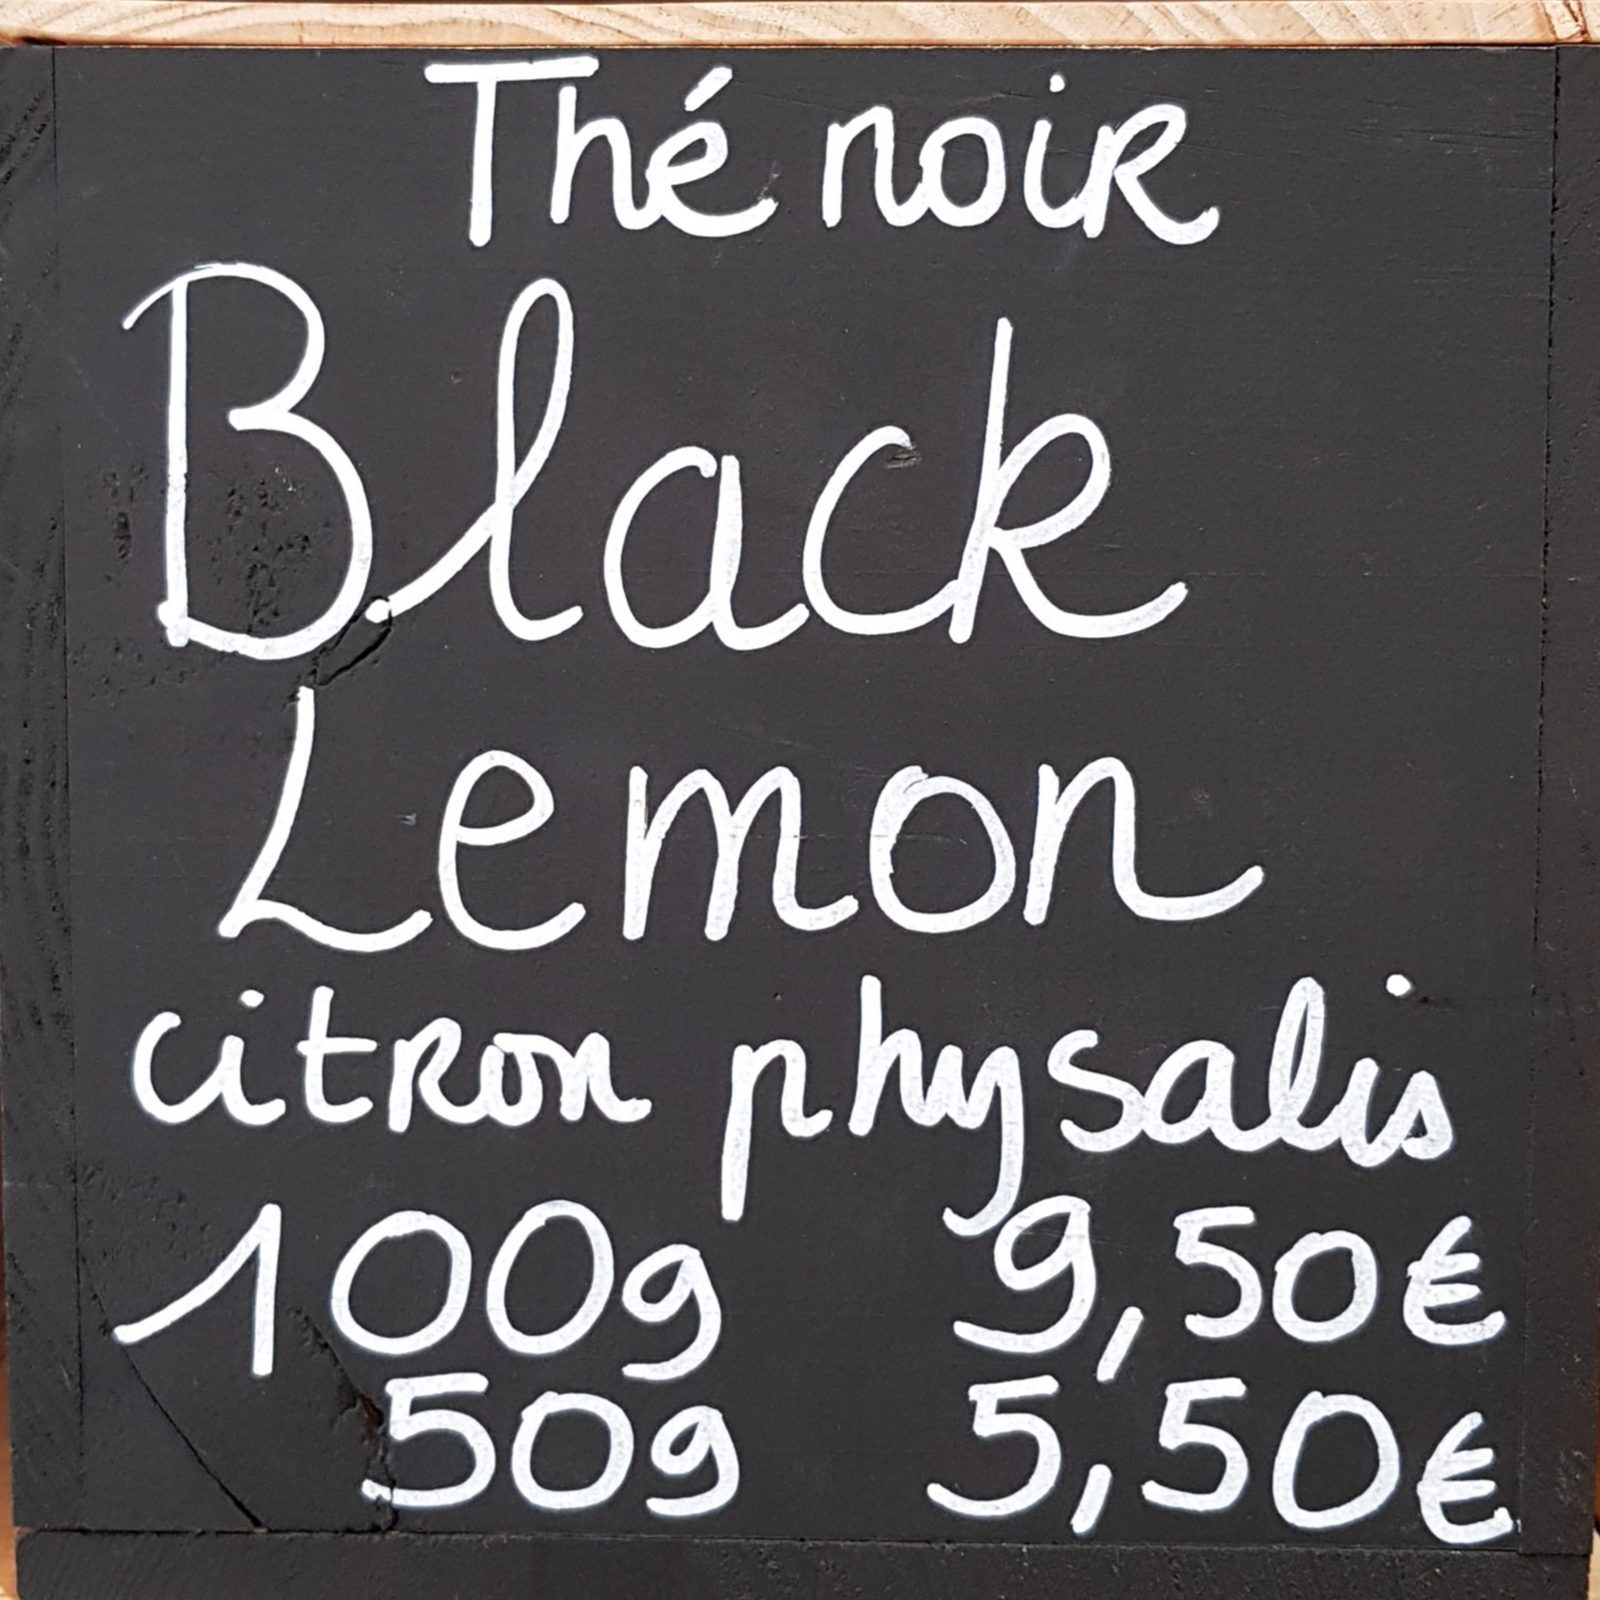 Thé noir
Black
Lemon
citron physalis
100g 9,50€
50g 5,50€